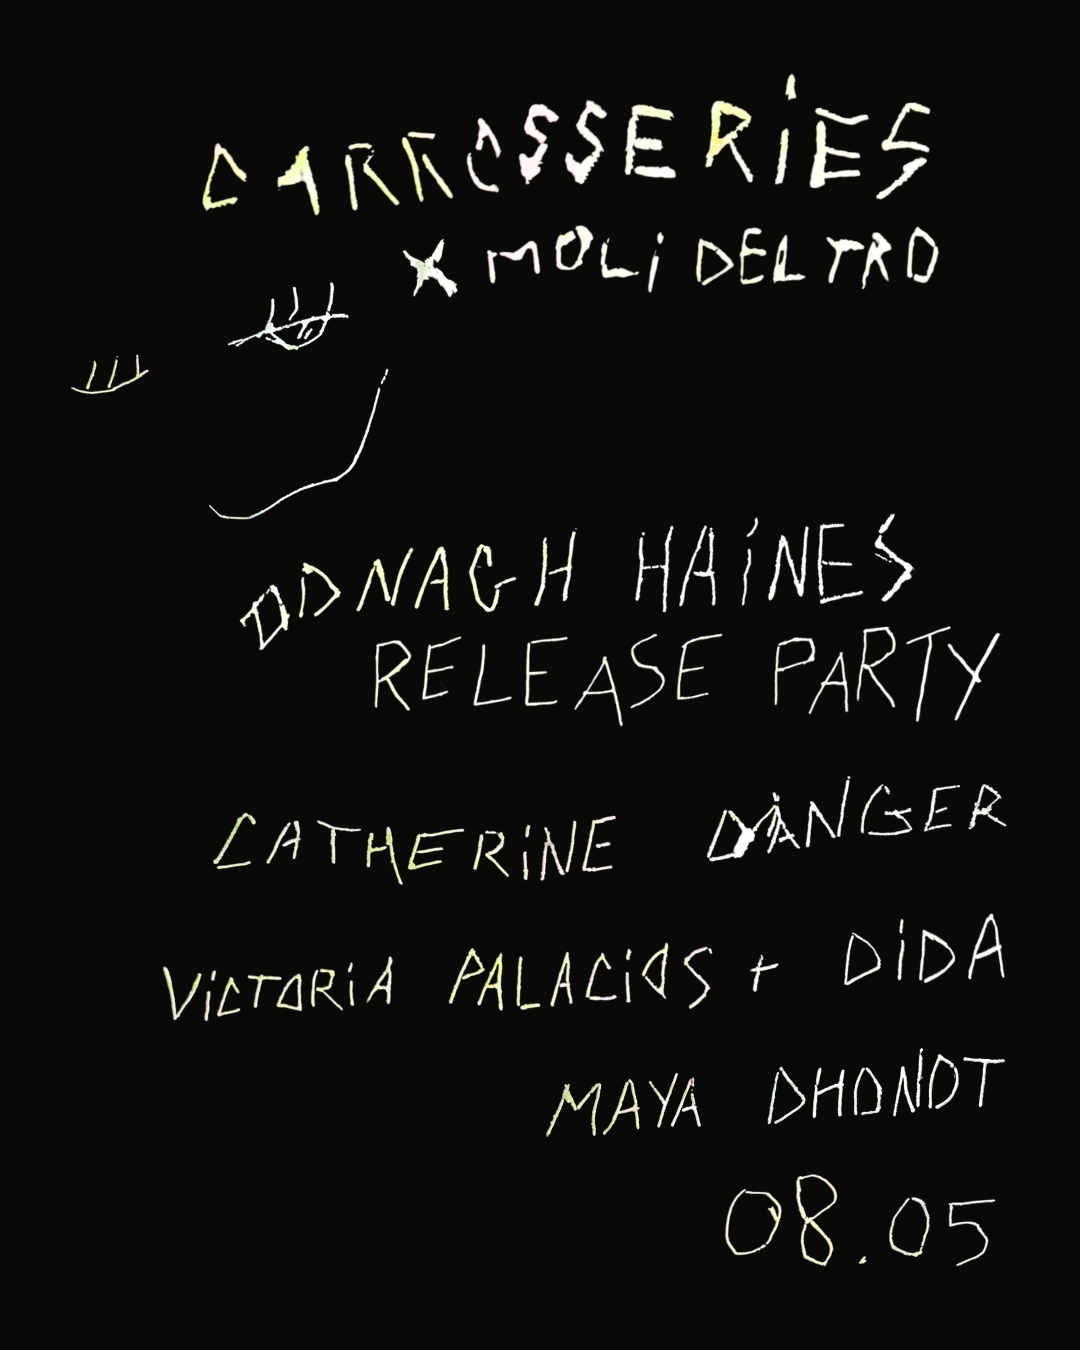 CARROSSERIES
X MOLi DEL TRO
ODNAGH HAiNES
RELEASE PARTY
CATHERiNE DANGER
ViCTORiA PALACiOS + DiDA
MAYA DHONDT
08.05